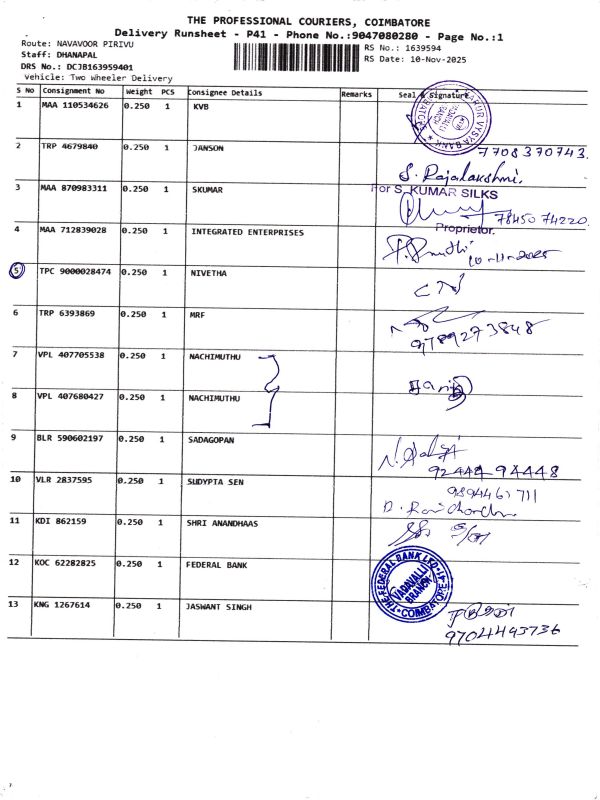 THE PROFESSIONAL COURIERS, COIMBATORE
Delivery Runsheet - P41 - Phone No.:9047080280 - Page No.:1
Route: NAVAVOOR PIRIVU
RS No.: 1639594
Staff: DHANAPAL
RS Date: 10-Nov-2025
DRS No.: DCJB163959401
vehicle: Two Wheeler Delivery
S No Consignment No Weight PCS Consignee Details Remarks Seal & Signature
1 MAA 110534626 0.250 1 KVB
2 TRP 4679840 0.250 1 JANSON 7708370743.
S. Rajalakshmi.
3 MAA 870983311 0.250 1 SKUMAR For S. KUMAR SILKS
78450 74220
Proprietor.
4 MAA 712839028 0.250 1 INTEGRATED ENTERPRISES
10-11-2025
5 TPC 9000028474 0.250 1 NIVETHA
6 TRP 6393869 0.250 1 MRF
9789273848
7 VPL 407705538 0.250 1 NACHIMUTHU
8 VPL 407680427 0.250 1 NACHIMUTHU
9 BLR 590602197 0.250 1 SADAGOPAN
92444 94448
10 VLR 2837595 0.250 1 SUDYPTA SEN
11 KDI 862159 0.250 1 SHRI ANANDHAAS
12 KOC 62282825 0.250 1 FEDERAL BANK THE FEDERAL BANK LTD
VADAVALLI
BRANCH
COIMBATORE
13 KNG 1267614 0.250 1 JASWANT SINGH
9704493736